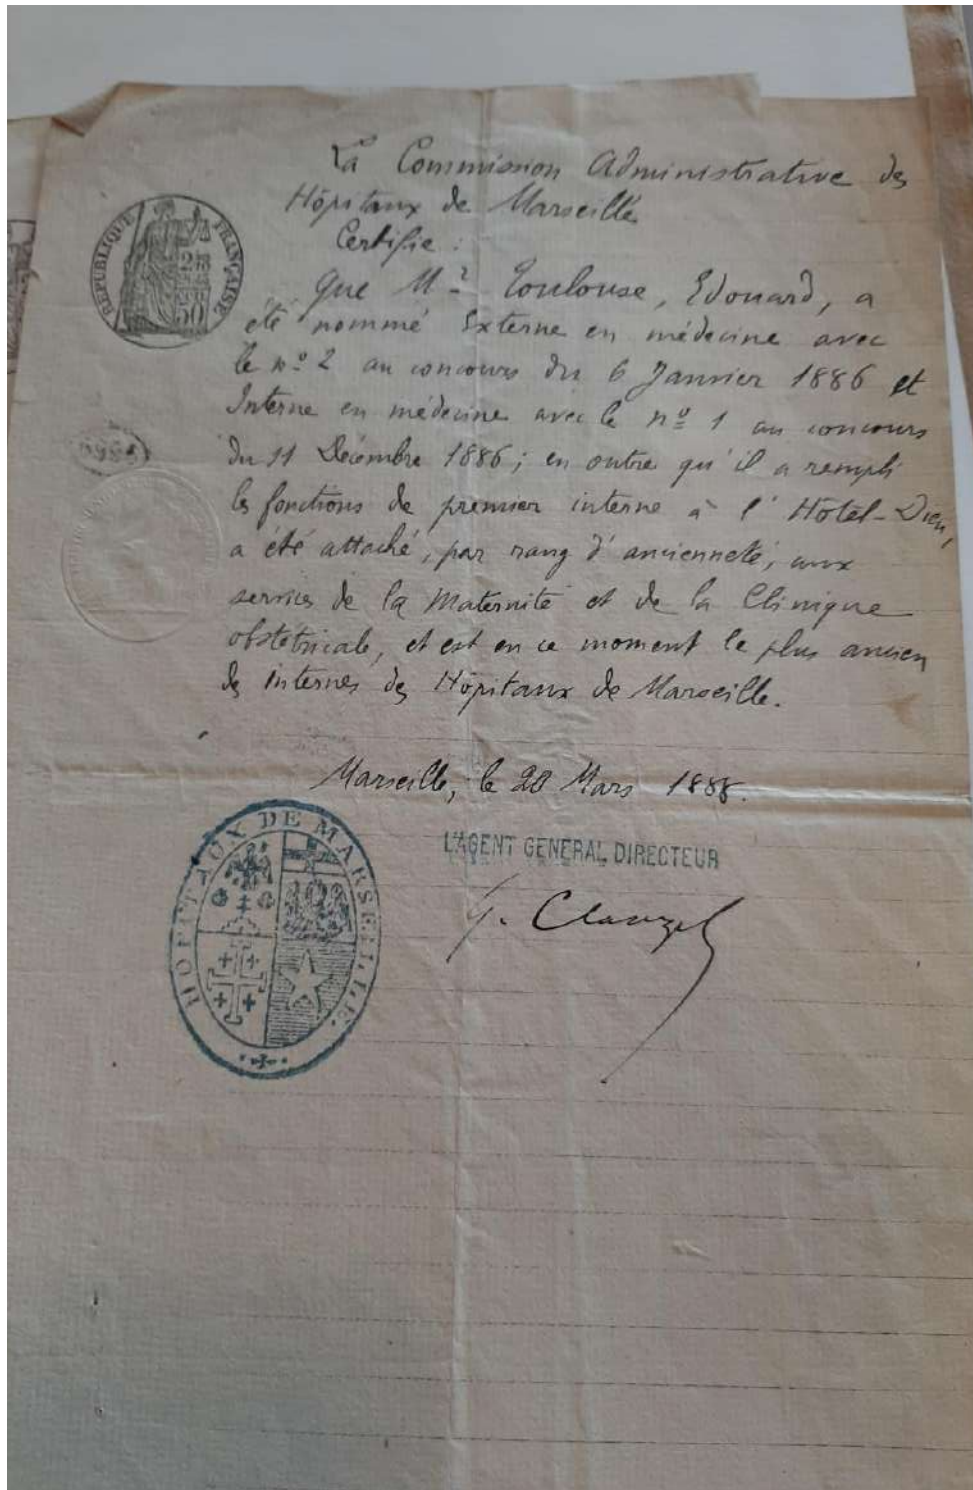 La Commission Administrative des
Hôpitaux de Marseille
Certifie :
Que Mr Toulouse, Edouard, a
été nommé Externe en médecine avec
le nº 2 au concours du 6 Janvier 1886 et
Interne en médecine avec le nº 1 au concours
du 11 Décembre 1886 ; en outre qu'il a rempli
les fonctions de premier interne à l'Hôtel-Dieu,
a été attaché, par rang d'ancienneté, aux
services de la Maternité et de la Clinique
obstétricale, et est en ce moment le plus ancien
des internes des Hôpitaux de Marseille.
Marseille, le 20 Mars 1888.
L'AGENT GENERAL DIRECTEUR
G. Clauzel
RÉPUBLIQUE FRANÇAISE
HOPITAUX DE MARSEILLE.